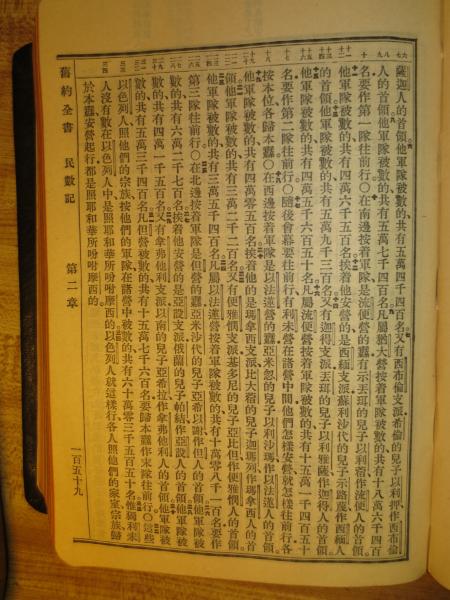 薩迦人的首領他軍隊被數的、共有五萬四千四百名又有西布倫支派希倫的兒子以利押作西布倫
人的首領他軍隊被數的、共有五萬七千四百名凡屬猶大營按着軍隊被數的、共有十八萬六千四百
名要作第一隊往前行〇在南邊按着軍隊是流便營的纛有示丟珥的兒子以利蓿作流便人的首領
他軍隊被數的、共有四萬六千五百名挨着他安營的是西緬支派蘇利沙代的兒子示路蔑作西緬人
的首領他軍隊被數的、共有五萬九千三百名又有迦得支派丟珥的兒子以利雅薩作迦得人的首領
他軍隊被數的、共有四萬五千六百五十名凡屬流便營按着軍隊被數的、共有十五萬一千四百五十
名要作第二隊往前行〇隨後會幕要往前行有利未營在諸營中間他們怎樣安營就怎樣往前行各
按本位各歸本纛〇在西邊按着軍隊是以法蓮營的纛亞米忽的兒子以利沙瑪作以法蓮人的首領
他軍隊被數的、共有四萬零五百名挨着他的是瑪拿西支派比大蓿的兒子迦瑪列作瑪拿西人的首
領他軍隊被數的、共有三萬二千二百名又有便雅憫支派基多尼的兒子亞比但作便雅憫人的首領
他軍隊被數的、共有三萬五千四百名凡屬以法蓮營按着軍隊被數的、共有十萬零八千一百名要作
第三隊往前行〇在北邊按着軍隊是但營的纛亞米沙代的兒子亞希以謝作但人的首領他軍隊被
數的、共有六萬二千七百名挨着他安營的是亞設支派俄蘭的兒子帕結作亞設人的首領他軍隊被
數的、共有四萬一千五百名又有拿弗他利支派以南的兒子亞希拉作拿弗他利人的首領他軍隊被
數的、共有五萬三千四百名凡但營被數的、共有十五萬七千六百名要歸本纛作末隊往前行〇這些
以色列人照他們的宗族按他們的軍隊在諸營中被數的、共有六十萬零三千五百五十名惟獨利未
人沒有數在以色列人中是照耶和華所吩咐摩西的以色列人就這樣行各人照他們的家室宗族歸
於本纛安營起行都是照耶和華所吩咐摩西的
舊約全書 民數記 第二章 一百五十九